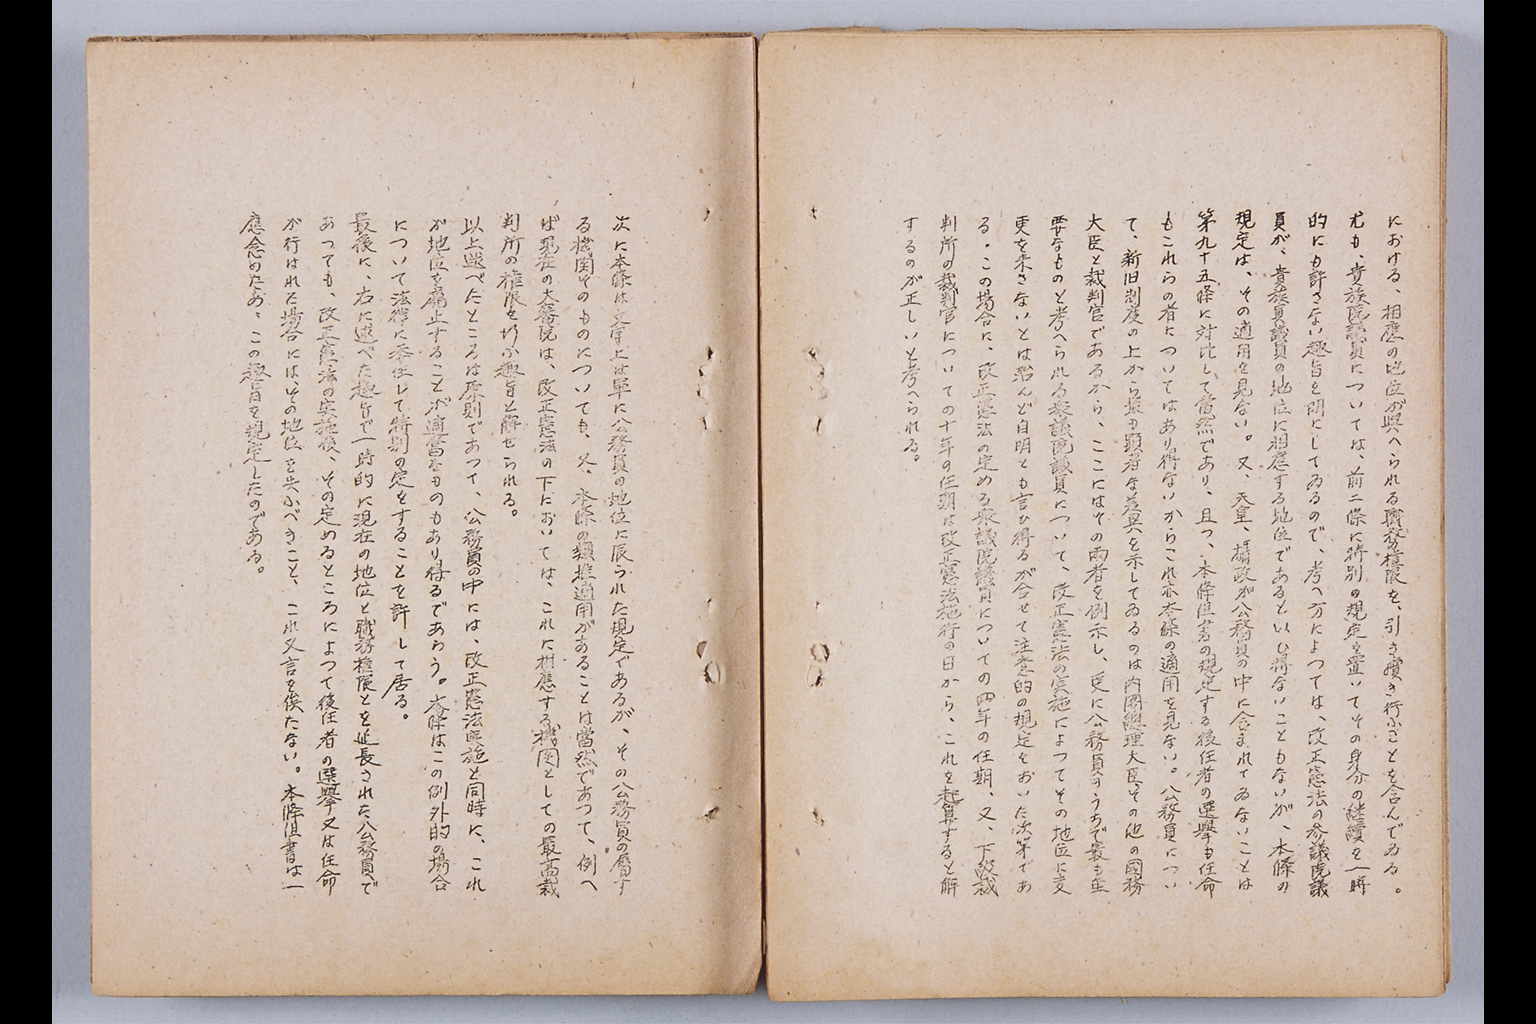 における、相應の地位が與へられる職務權限を、引き續き行ふことを含んでゐる。
尤も、貴族院議員については、前二條に特別の規定を置いてその身分の継續を一時
的にも許さない趣旨を明にしてゐるので、考へ方によつては、改正憲法の参議院議
員が、貴族員議員の地位に相應する地位であるといひ得ないこともないが、本條の
規定は、その適用を見ない。又、天皇、攝政が公務員の中に含まれてゐないことは
第九十五條に対比して當然であり、且つ、本條但書の規定する後任者の選擧も任命
もこれらの者についてはあり得ないからこれ亦本條の適用を見ない。公務員につい
て、新旧制度の上から最も顕著な差異を示してゐるのは内閣總理大臣、その他の國務
大臣と裁判官であるから、ここにはその両者を例示し、更に公務員のうちで最も重
要なものと考へられる衆議院議員について、改正憲法の実施によつてその地位に変
更を来さないとは殆んど自明とも言ひ得るが合せて注意的の規定をおいた次第であ
る。この場合に、改正憲法の定める衆議院議員についての四年の任期、又、下級裁
判所の裁判官についての十年の任期は改正憲法施行の日から、これを起算すると解
するのが正しいと考へられる。
次に本條は文字上は単に公務員の地位に限られた規定であるが、その公務員の屬す
る機関そのものについても、又、本條の類推適用があることは當然であつて、例へ
ば現在の大審院は、改正憲法の下においては、これに相應する機関としての最高裁
判所の權限を行ふ趣旨と解せられる。
以上述べたところは原則であつて、公務員の中には、改正憲法実施と同時に、これ
が地位を廃止することが適當なものもあり得るであらう。本條はこの例外的の場合
について法律に委任して特別の定をすることを許して居る。
最後に、右に述べた趣旨で一時的に現在の地位と職務權限とを延長された公務員で
あつても、改正憲法の実施後、その定めるところによつて後任者の選擧又は任命
が行はれた場合には、その地位を失ふべきこと、これ又言を俟たない。本條但書は一
應念のため、この趣旨を規定したのである。